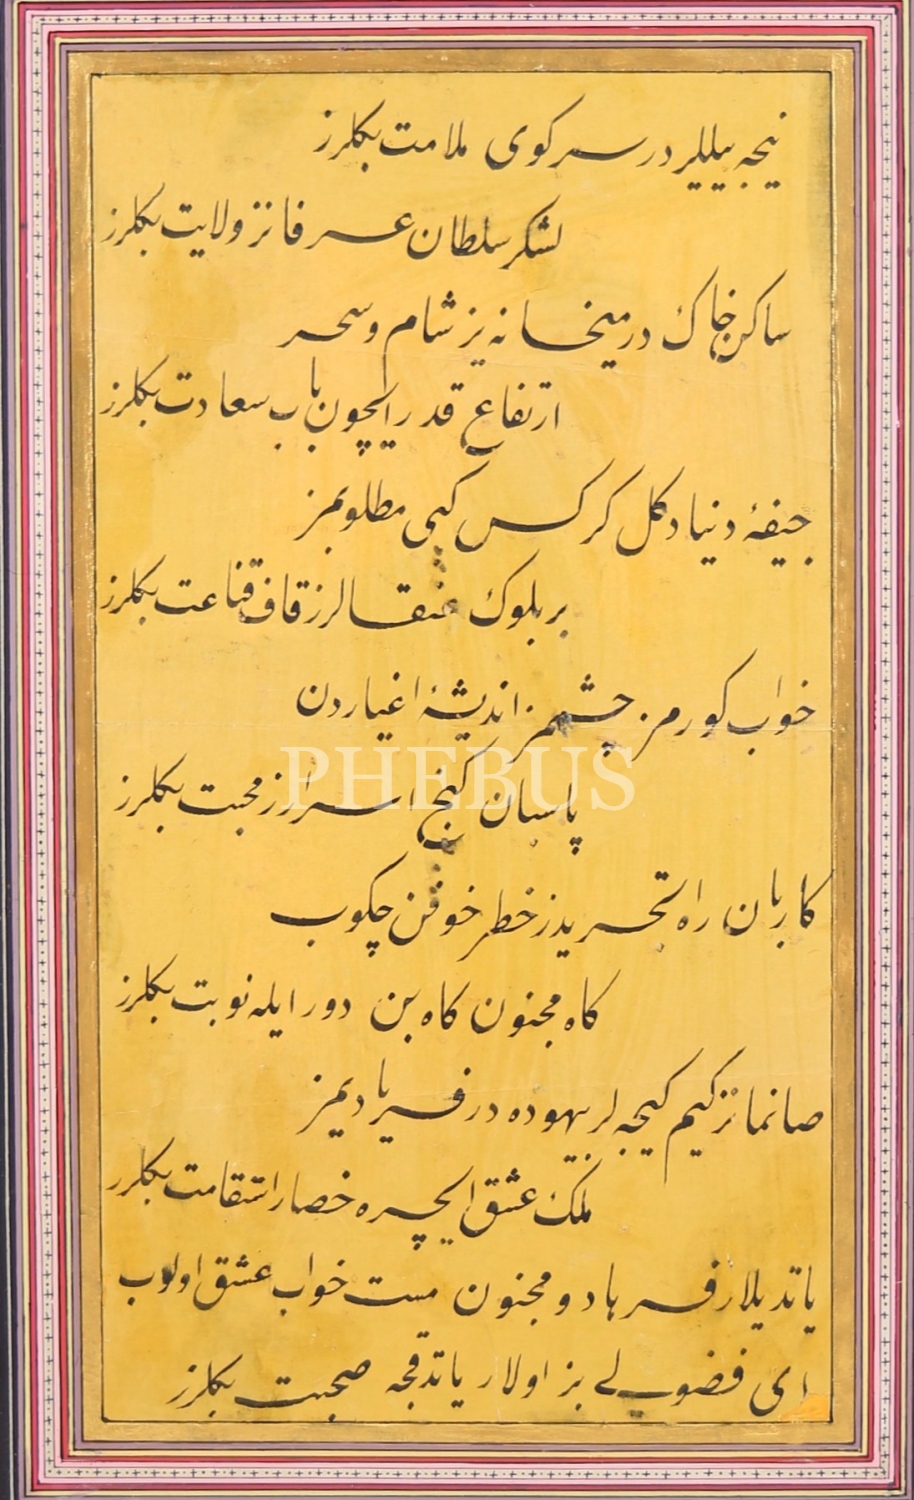 نیجه ییللر در سر کوی ملامت بکلرز
لشکر سلطان عرفانز ولایت بکلرز
ساکن خاک در میخانه یز شام و سحر
ارتفاع قدر ایچون باب سعادت بکلرز
جیفهٔ دنیا دکل کرکس کبی مطلوبمز
بر بلوک عنقالرز قاف قناعت بکلرز
خواب کورمز چشممز اندیشهٔ اغیاردن
پاسبان کنج اسرار محبت بکلرز
کاربان راه تجریدز خطر خوفن چکوب
کاه مجنون کاه بن دور ایله نوبت بکلرز
صانمانز کیم کیجه لر بیهوده در فریادیمز
ملک عشق ایچره حصار استقامت بکلرز
یاتدیلار فرهاد و مجنون مست خواب عشق اولوب
ای فضولی بز اولار یاتدقجه صحبت بکلرز
PHEBUS